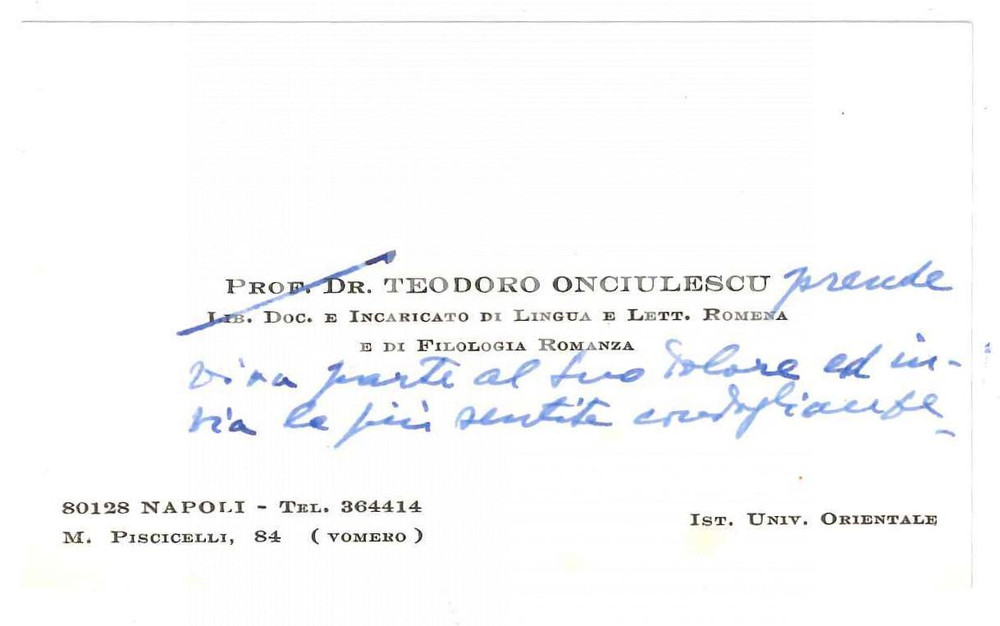 PROF. DR. TEODORO ONCIULESCU prende
LIB. DOC. E INCARICATO DI LINGUA E LETT. ROMENA
E DI FILOLOGIA ROMANZA
viva parte al Suo dolore ed in-
via le più sentite condoglianze
80128 NAPOLI - TEL. 364414
M. PISCICELLI, 84 (VOMERO)
IST. UNIV. ORIENTALE